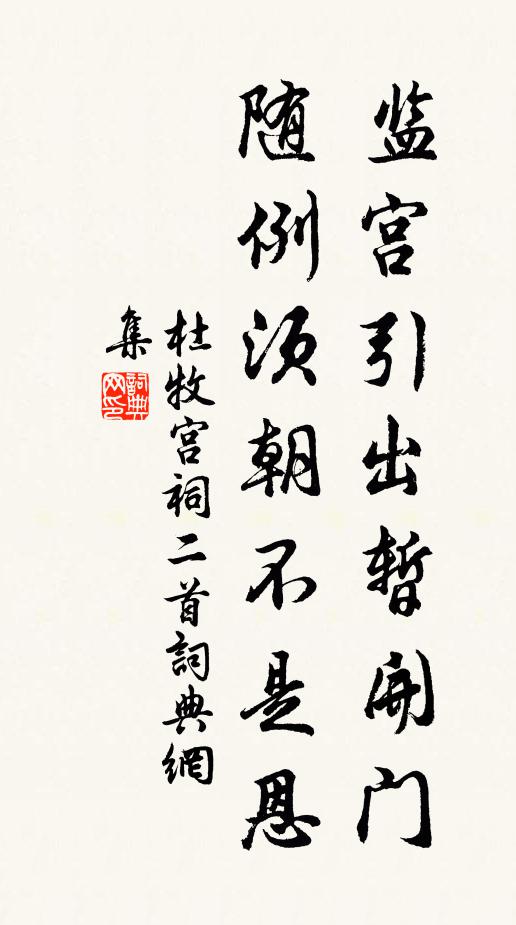 监宫引出暂开门
随例须朝不是恩
杜牧宫祠二首詞典網
集
詞典网印